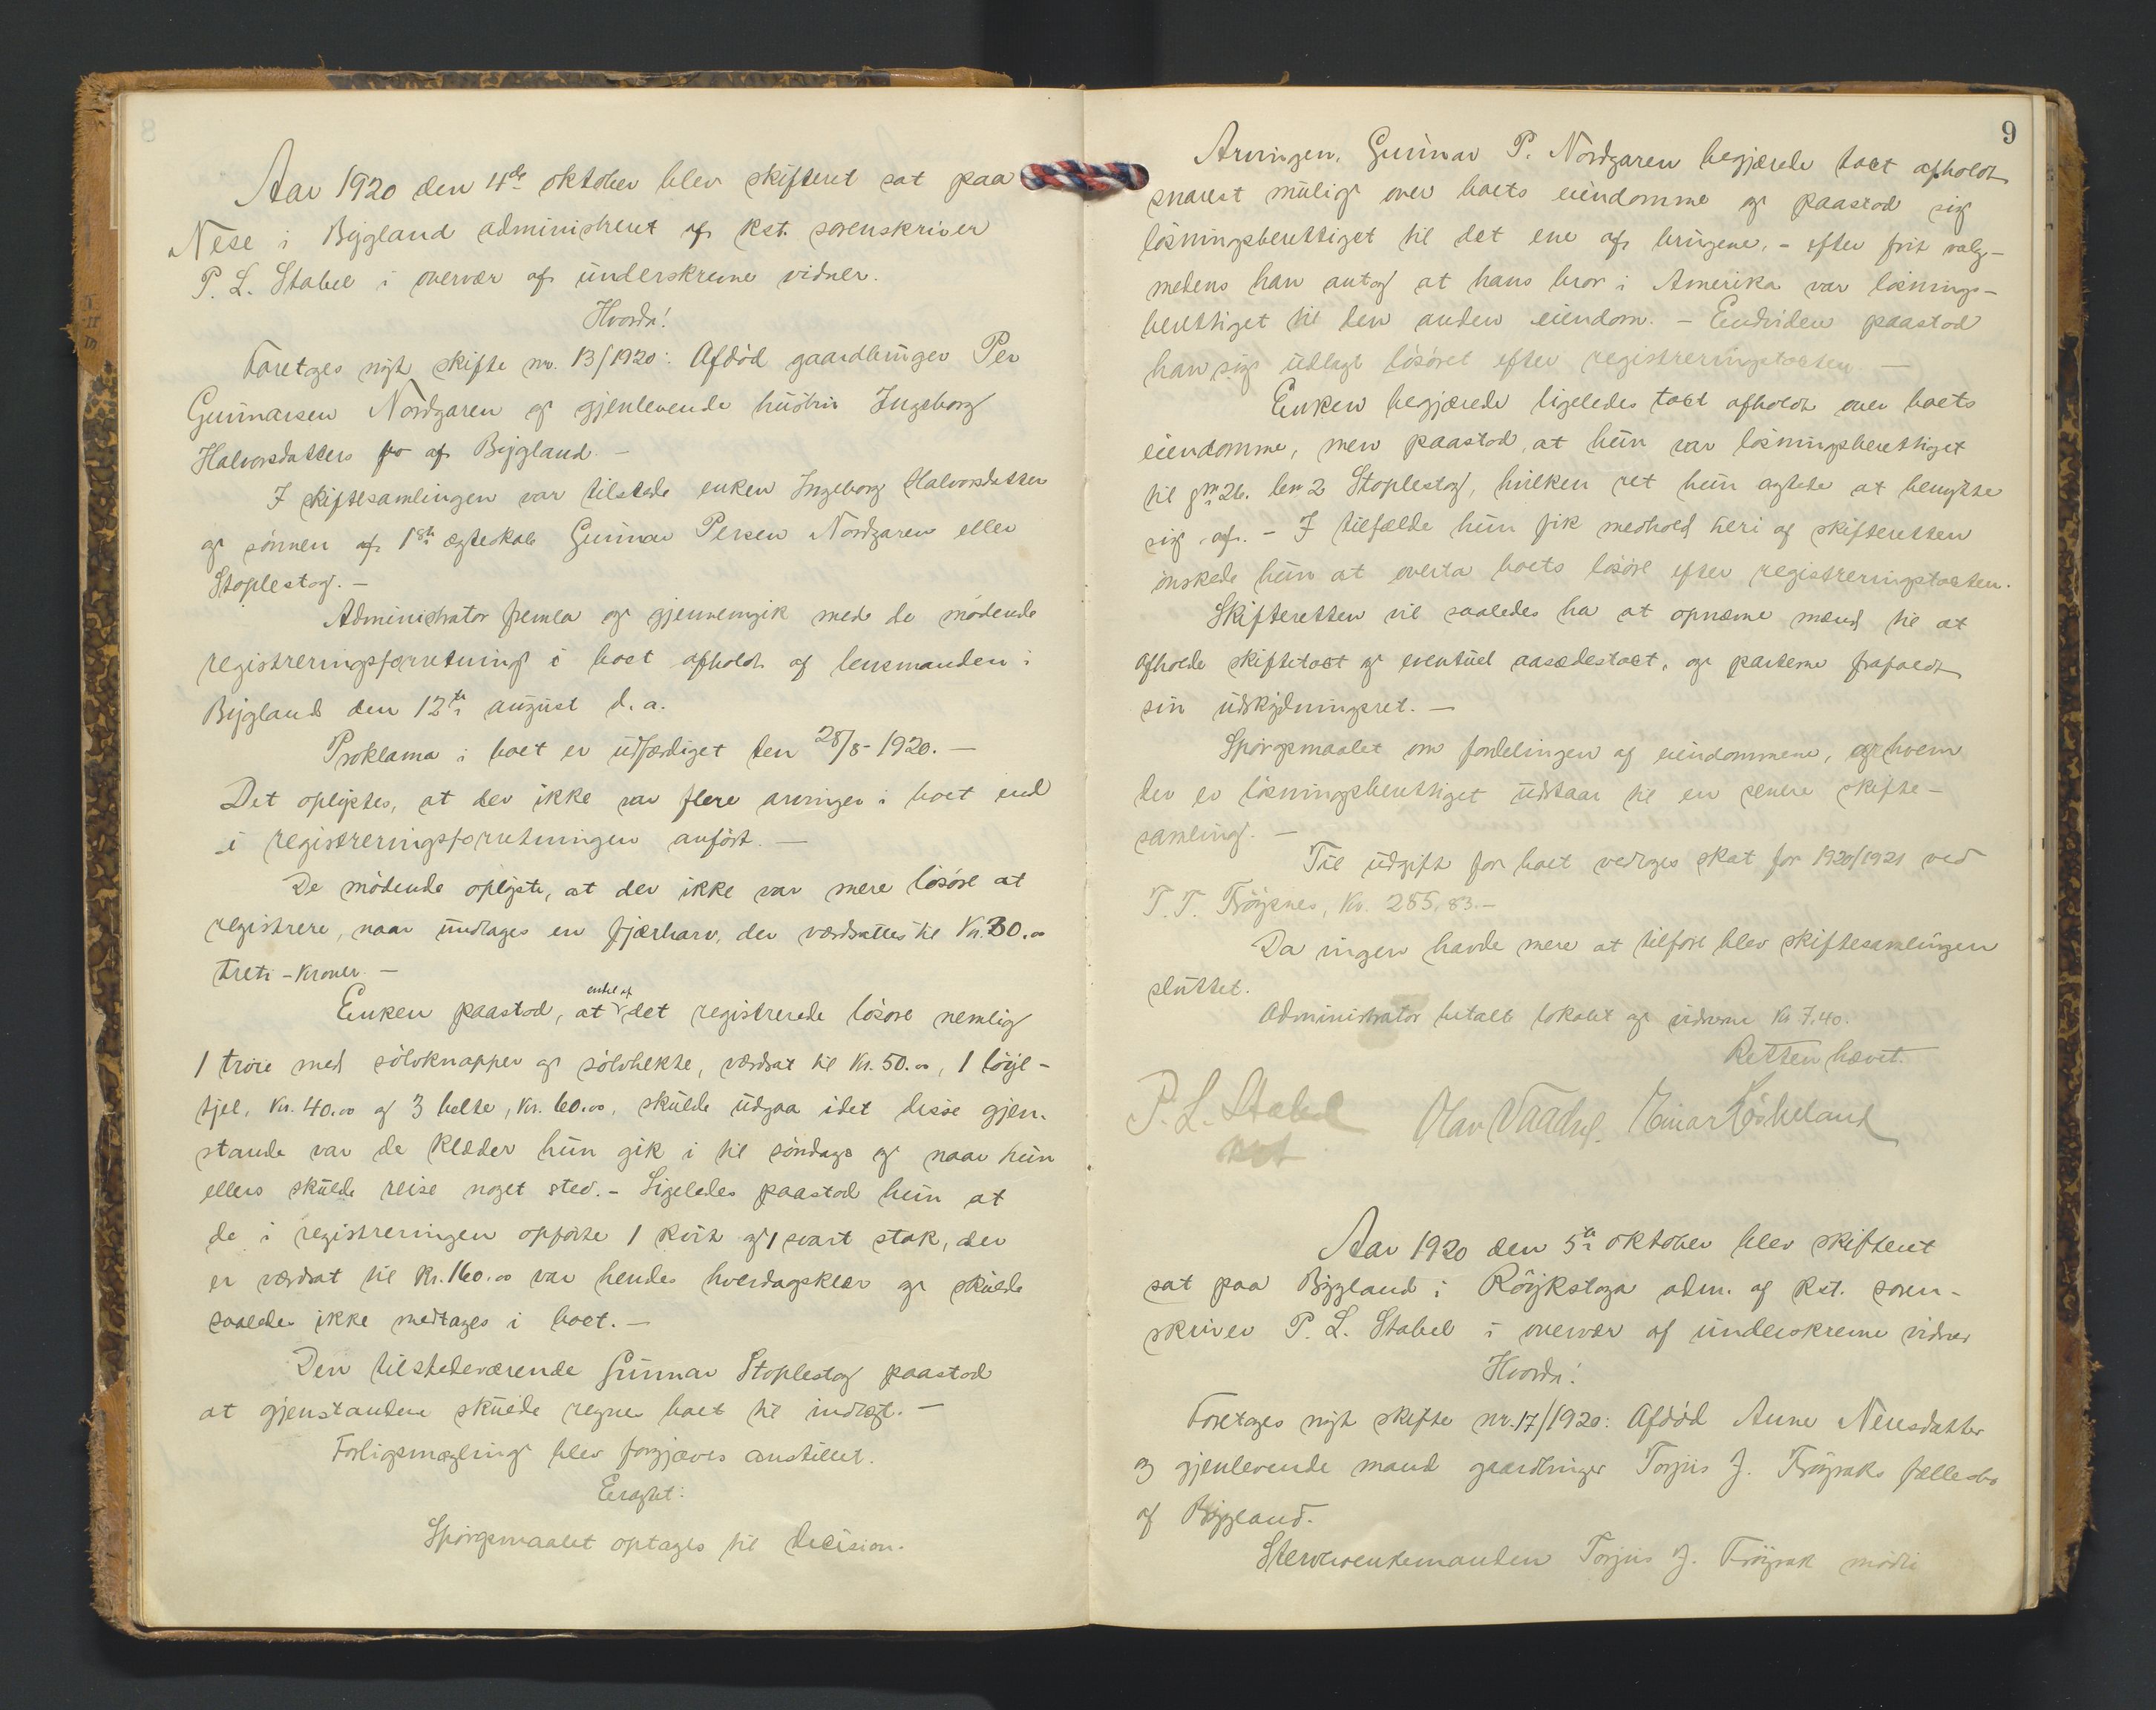 Aar 1920 den 4de oktober blev skifteret sat paa
Nese i Bygland administreret af kst. sorenskriver
P. L. Stabel i overvær af underskrevne vidner.
Hvorda!
Foretges nyt skifte nr. 13/1920: Afdöd gaardbruger Per
Gunnarsen Nordgaren og gjenlevende hustru Ingeborg
Halvorsdatters bo af Bygland. –
I skiftesamlingen var tilstede enken Ingeborg Halvorsdatter
og sönnen af 1ste egteskab Gunnar Persen Nordgaren eller
Stoplestog. –
Administrator fremla og gjennemgik med de mödende
registreringsforretning i boet afholdt af lensmanden i
Bygland den 12te august d. a.
Proklama i boet er udfærdiget den 28/8-1920. –
Det oplystes, at der ikke var flere arvinger i boet end
i registreringsforretningen anfört. –
De mödende oplyste, at der ikke var mere lösöre at
registrere, naar undtages en fjærharv, der værdsattes til Kr. 30.00
treti – Kroner –
Enken paastod, at endel af det registrerede lösöre nemlig
1 tröie med sölvknapper og sölvhekte, værdsat til Kr. 50.00, 1
Kr. 40.00 og 3 belte, Kr. 60.00, skulde udgaa idet disse gjen-
stande var de klæder hun gik i til söndags og naar hun
ellers skulde reise noget sted. – Ligeledes paastod hun at
de i registreringen opförte 1 kvit og 1 svart stak, der
er værdsat til Kr. 160.00 var hendes hverdagsklær og skulde
saaledes ikke medtages i boet. –
Den tilstedeværende Gunnar Stoplestog paastod
at gjenstandene skulde regnes boet til indtægt. –
Forligsmægling blev forgjæves anstillet.
Eragtet:
Spörgsmaalet optages til decision.
9
Arvingen, Gunnar P. Nordgaren begjærede taxt afholdt
snarest mulig over boets eiendomme og paastod sig
lösningsberettiget til det ene af brugene, – efter frit valg –
medens han antog at hans bror i Amerika var lösnings-
berettiget til den anden eiendom. – Endvidere paastod
han sig udlagt lösöret efter registreringstaxten. –
Enken begjærede ligeledes taxt afholdt over boets
eiendomme, men paastod, at hun var lösningsberettiget
til gnr 26. bnr 2 Stoplestog, hvilken ret hun agtede at benytte
sig af. – I tilfælde hun fik medhold heri af skifteretten
önskede hun at overta boets lösöre efter registreringstaxten.
Skifteretten vil saaledes ha at opnævne mænd til at
afholde skiftetaxt og eventuel aasædestaxt, og parterne frafaldt
sin udskydningsret. –
Spörgsmaalet om fordelingen af eiendommene, og hvem
der er lösningsberettiget udstaar til en senere skifte-
samling. –
Til udgift for boet vedtoges skat for 1920/1921 ved
T. T. Fröysnes, Kr. 255.83. –
Da ingen havde mere at tilföre blev skiftesamlingen
sluttet.
Administrator betalt lokalet og vidnerne Kr. 7.40.
Retten hævet.
P. L. Stabel
kst
Olav Vaadne. Einar Röskeland
Aar 1920 den 5te oktober blev skifteret
sat paa Bygland i Röykstoga adm. af kst. soren-
skriver P. L. Stabel i overvær af underskrevne vidner
Hvorda!
Foretages nyt skifte nr. 17/1920: Afdöd Anne Nerisdatter
og gjenlevende mand gaardbruger Torjus J. Fröyraks fællesbo
af Bygland.
Stervboenkemanden Torjus J. Fröyrak mödte